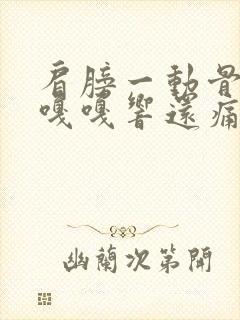 肩膀一動骨
嘎嘎響還痛
幽蘭次第開